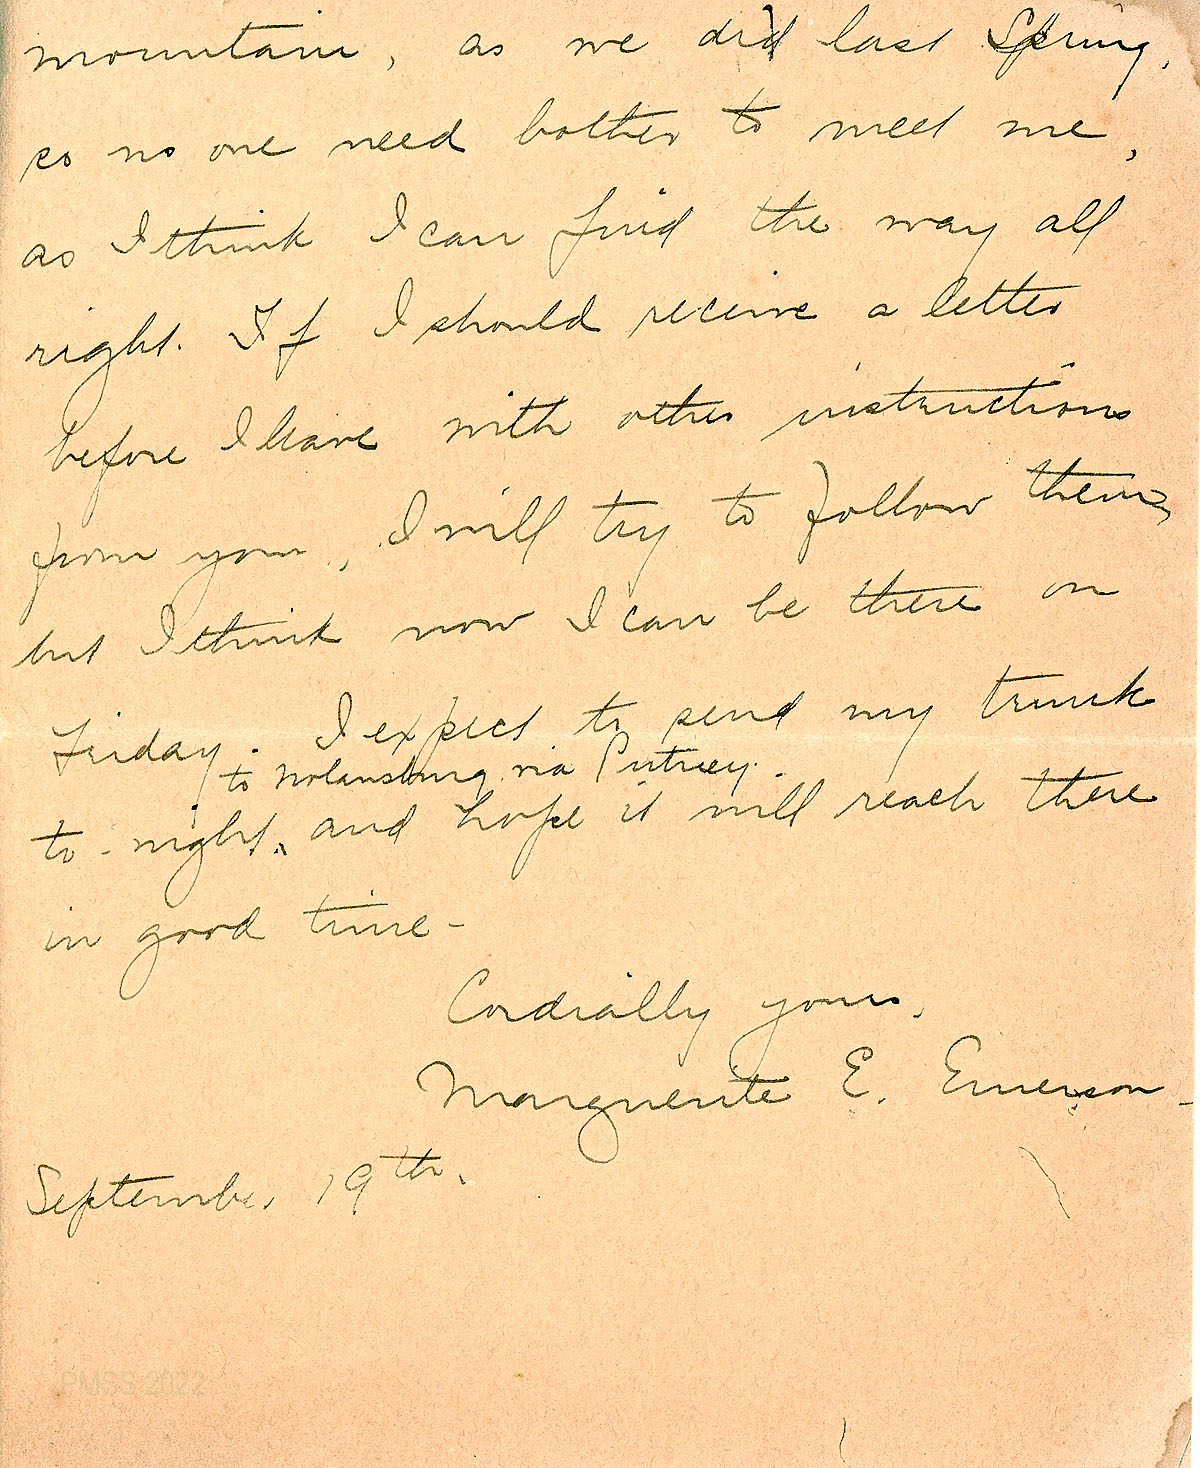 mountain, as we did last Spring,
so no one need bother to meet me,
as I think I can find the way all
right. If I should receive a letter
before I leave with other instructions
from you, I will try to follow them,
but I think now I can be there on
Friday. I expect to send my trunk
to Nolansburg via Putney.
to-night, and hope it will reach there
in good time-
Cordially yours,
Marguerite E. Emerson-
September 19th.
PMSS 2022